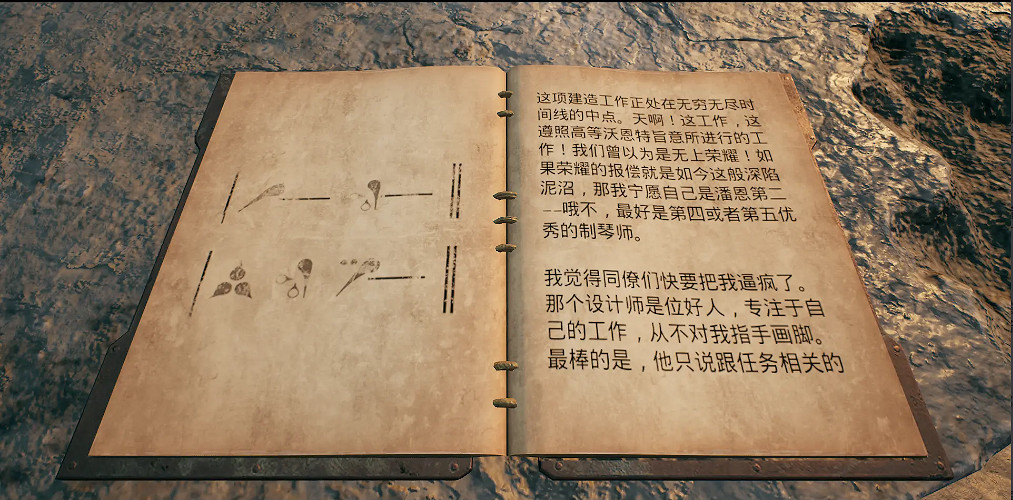 这项建造工作正处在无穷无尽时
间线的中点。天啊！这工作，这
遵照高等沃恩特旨意所进行的工
作！我们曾以为是无上荣耀！如
果荣耀的报偿就是如今这般深陷
泥沼，那我宁愿自己是潘恩第二
--哦不，最好是第四或者第五优
秀的制琴师。
我觉得同僚们快要把我逼疯了。
那个设计师是位好人，专注于自
己的工作，从不对我指手画脚。
最棒的是，他只说跟任务相关的